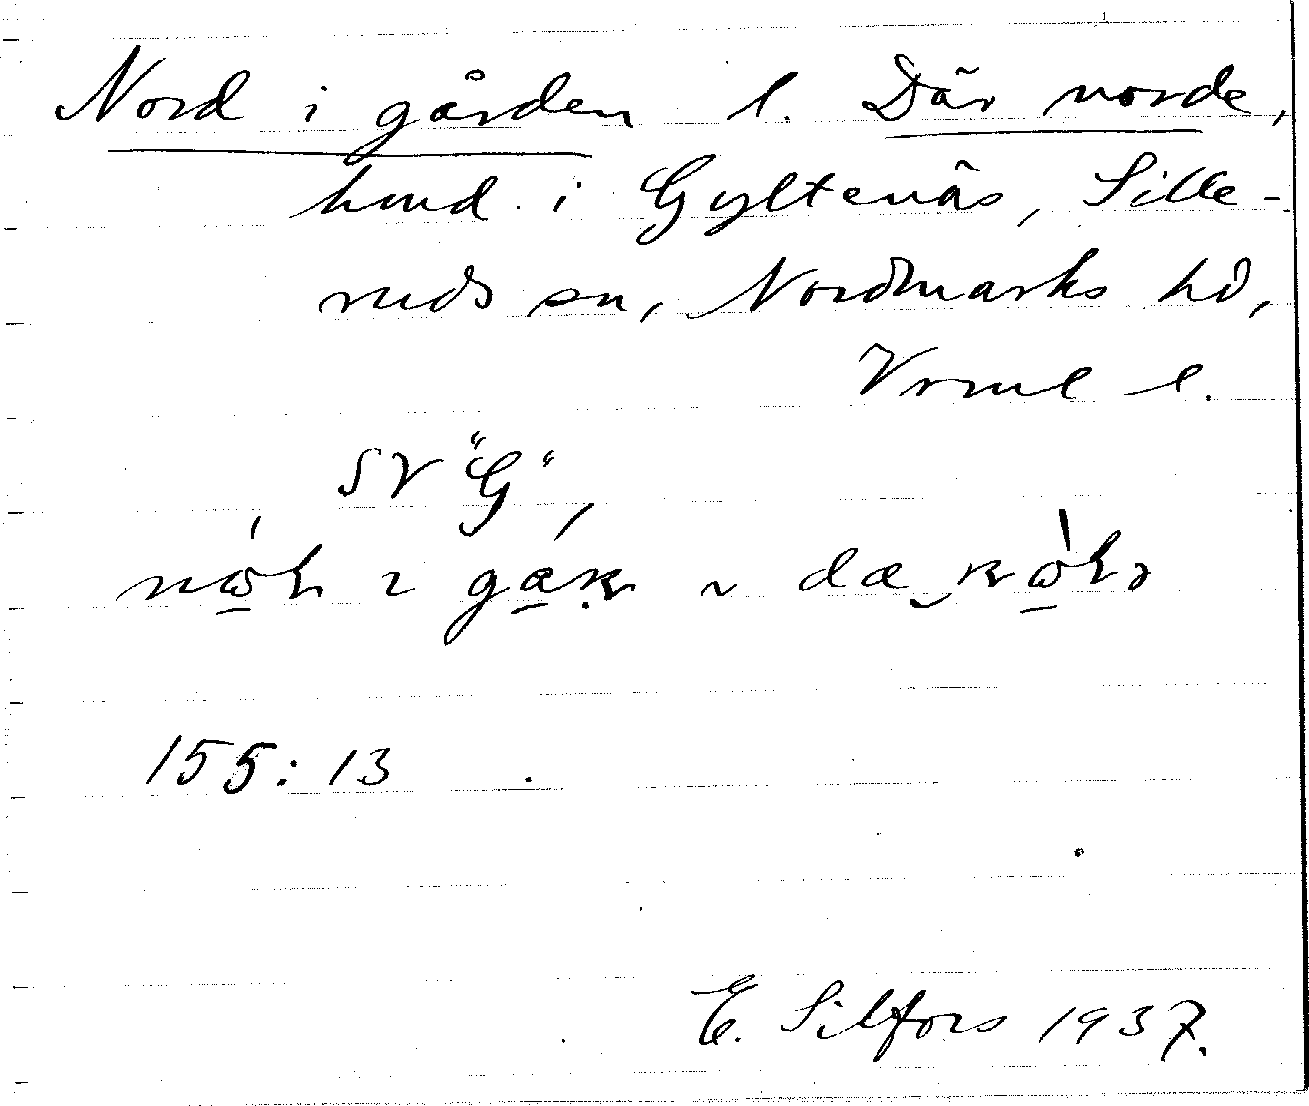 Nord i gården l. Där norde,
hmd. i Gyltenäs, Sille-
ruds sn, Nordmarks hd,
Vrml l.
SV "G"
155: 13
E. Silfors 1937.